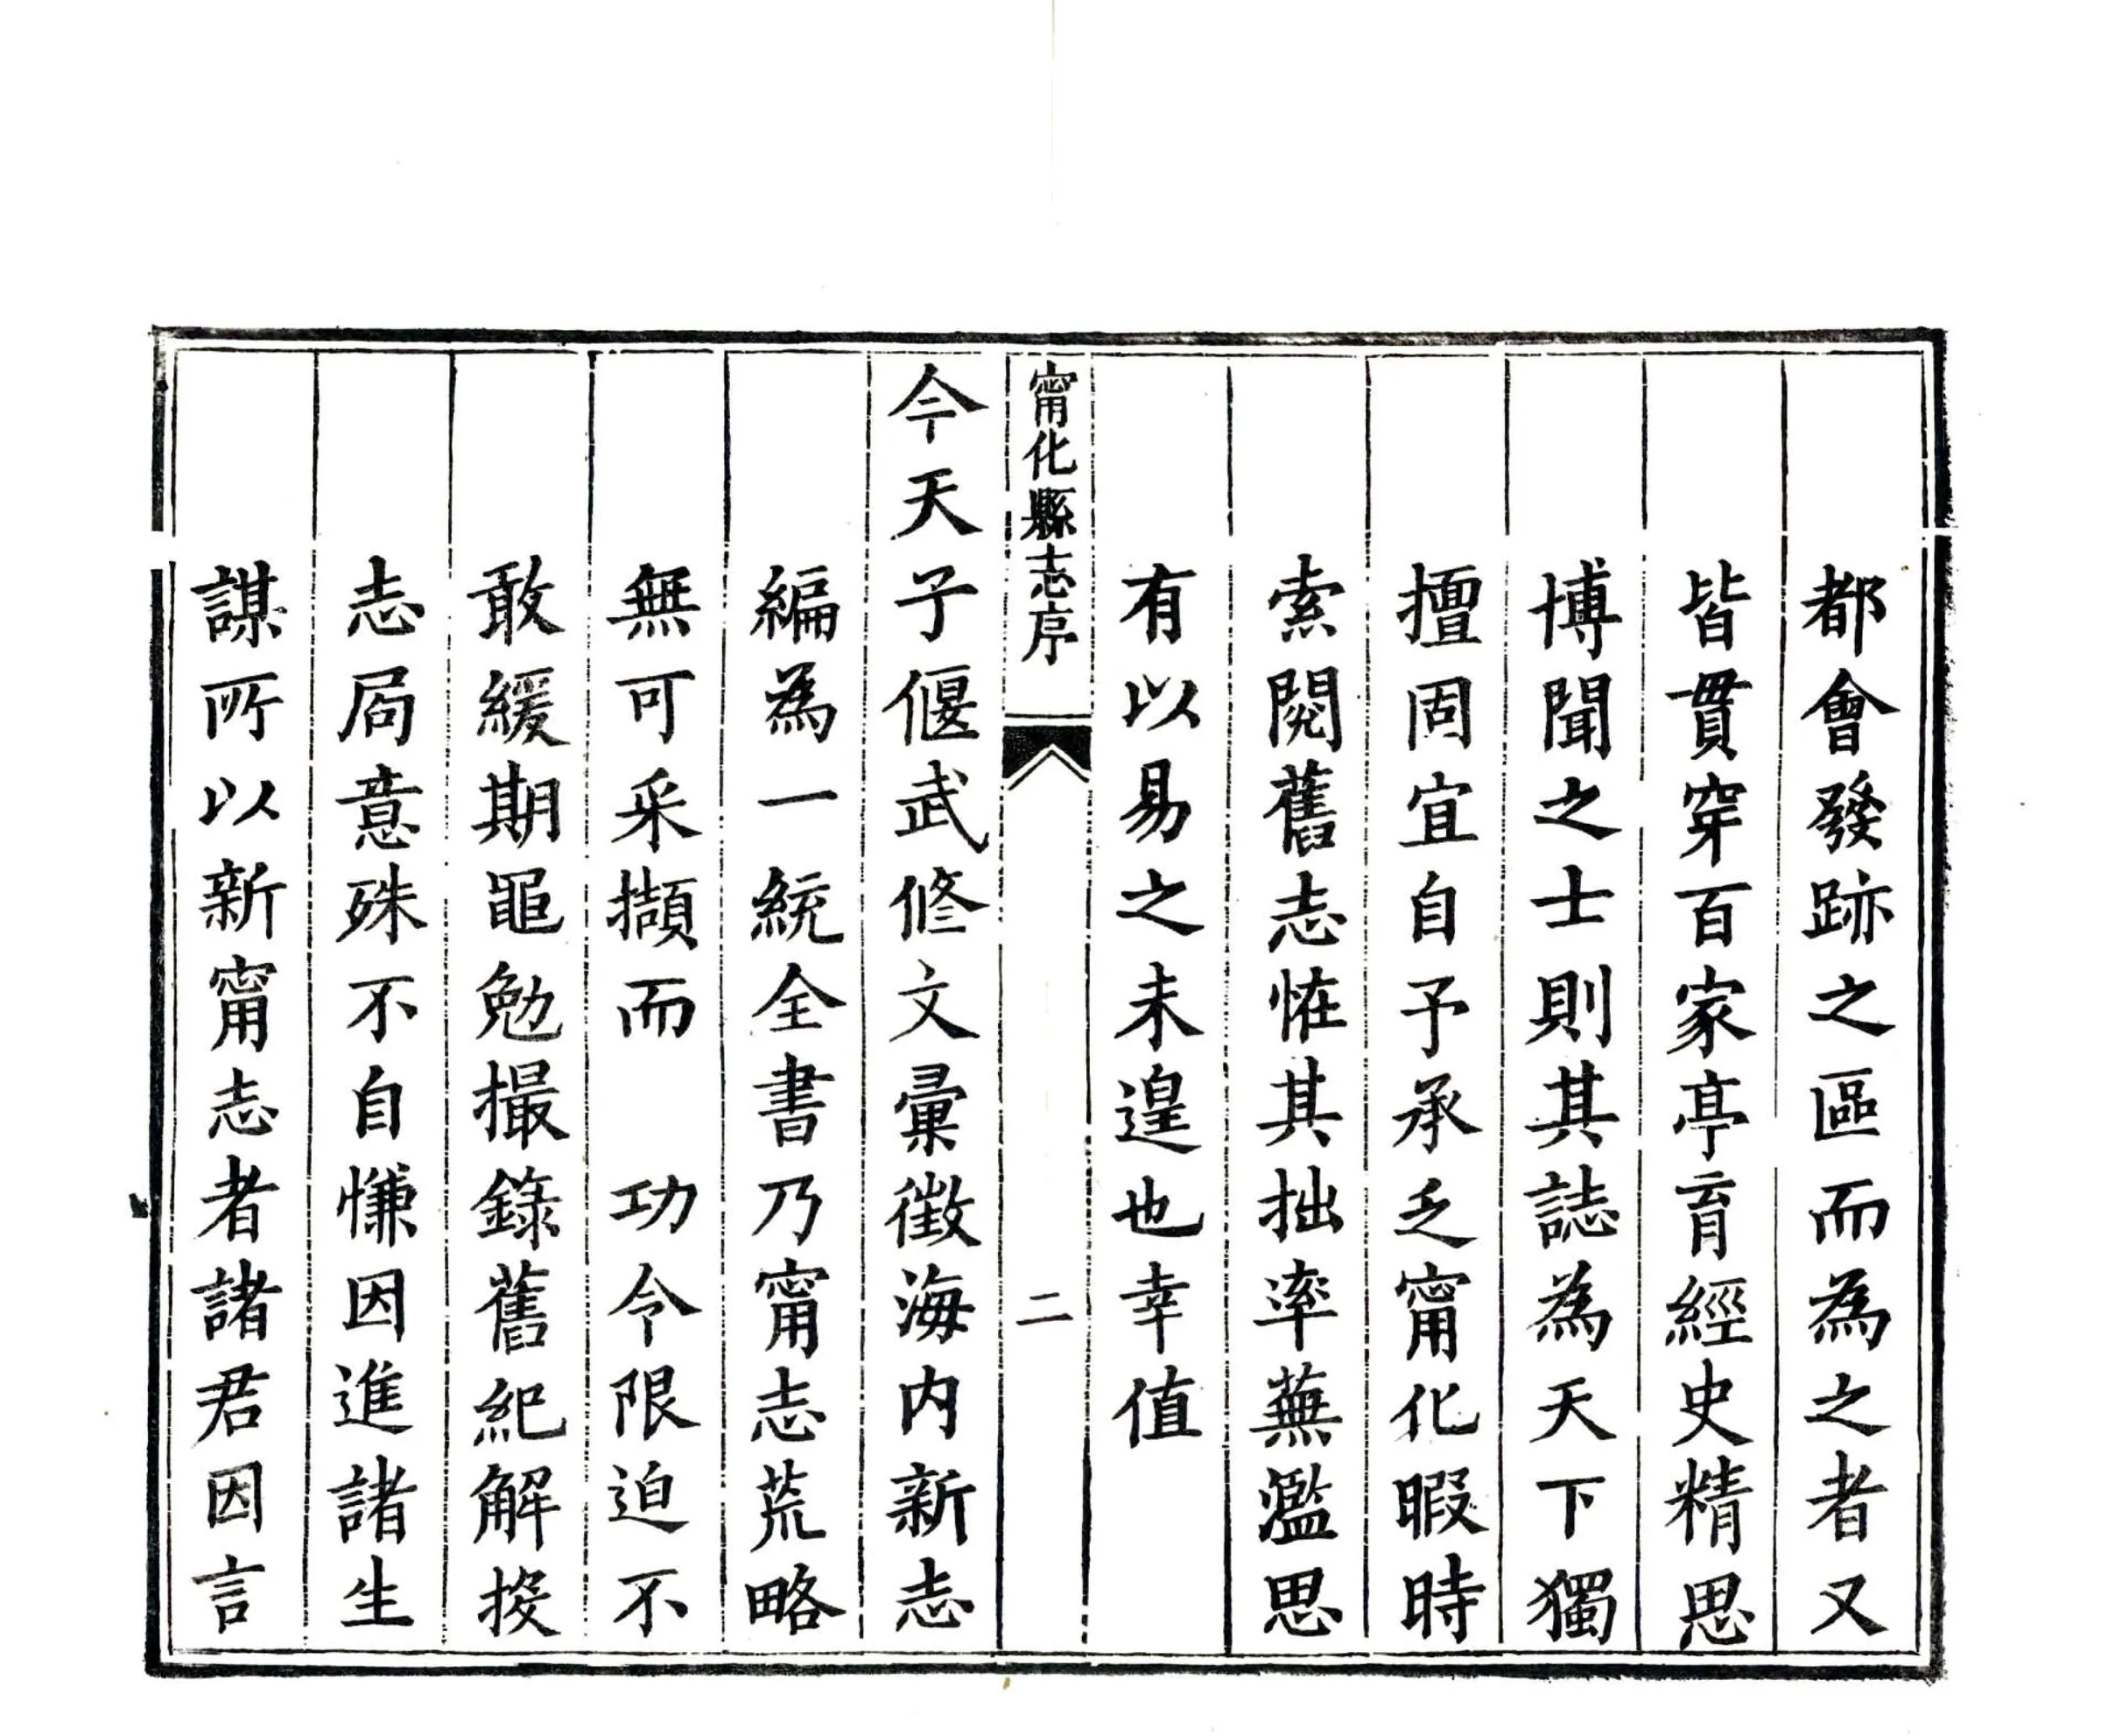 都會發跡之區而為之者又
皆貫穿百家亭育經史精思
博聞之士則其誌為天下獨
擅固宜自予承乏甯化暇時
索閱舊志恠其拙率蕪濫思
有以易之未遑也幸值
甯化縣志序
二
今天子偃武修文彙徵海内新志
編為一統全書乃甯志荒略
無可采擷而　功令限迫不
敢緩期黽勉撮錄舊紀解授
志局意殊不自慊因進諸生
謀所以新甯志者諸君因言